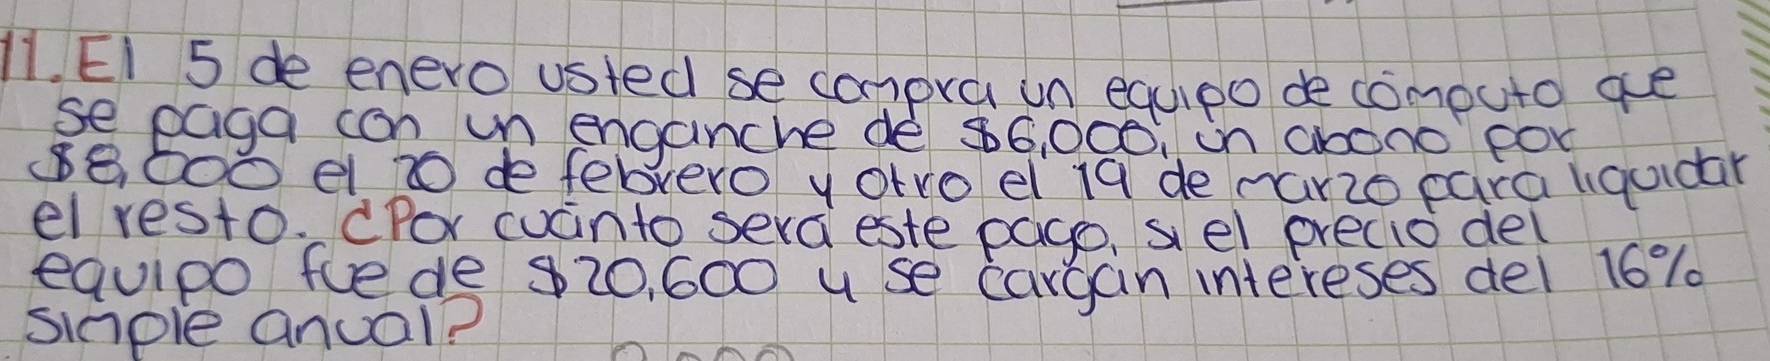 11. El 5 de enero usted se compra un equipo de cómputo que
se paga con un enganche de $6,000, un abono por
$8,000 el 20 de febrero y otro el 19 de marzo para liquidar
el resto. ¿Por cuánto será este pago, si el precio del
equipo fue de $20,600 y se cargan intereses del 16%
simple anual?